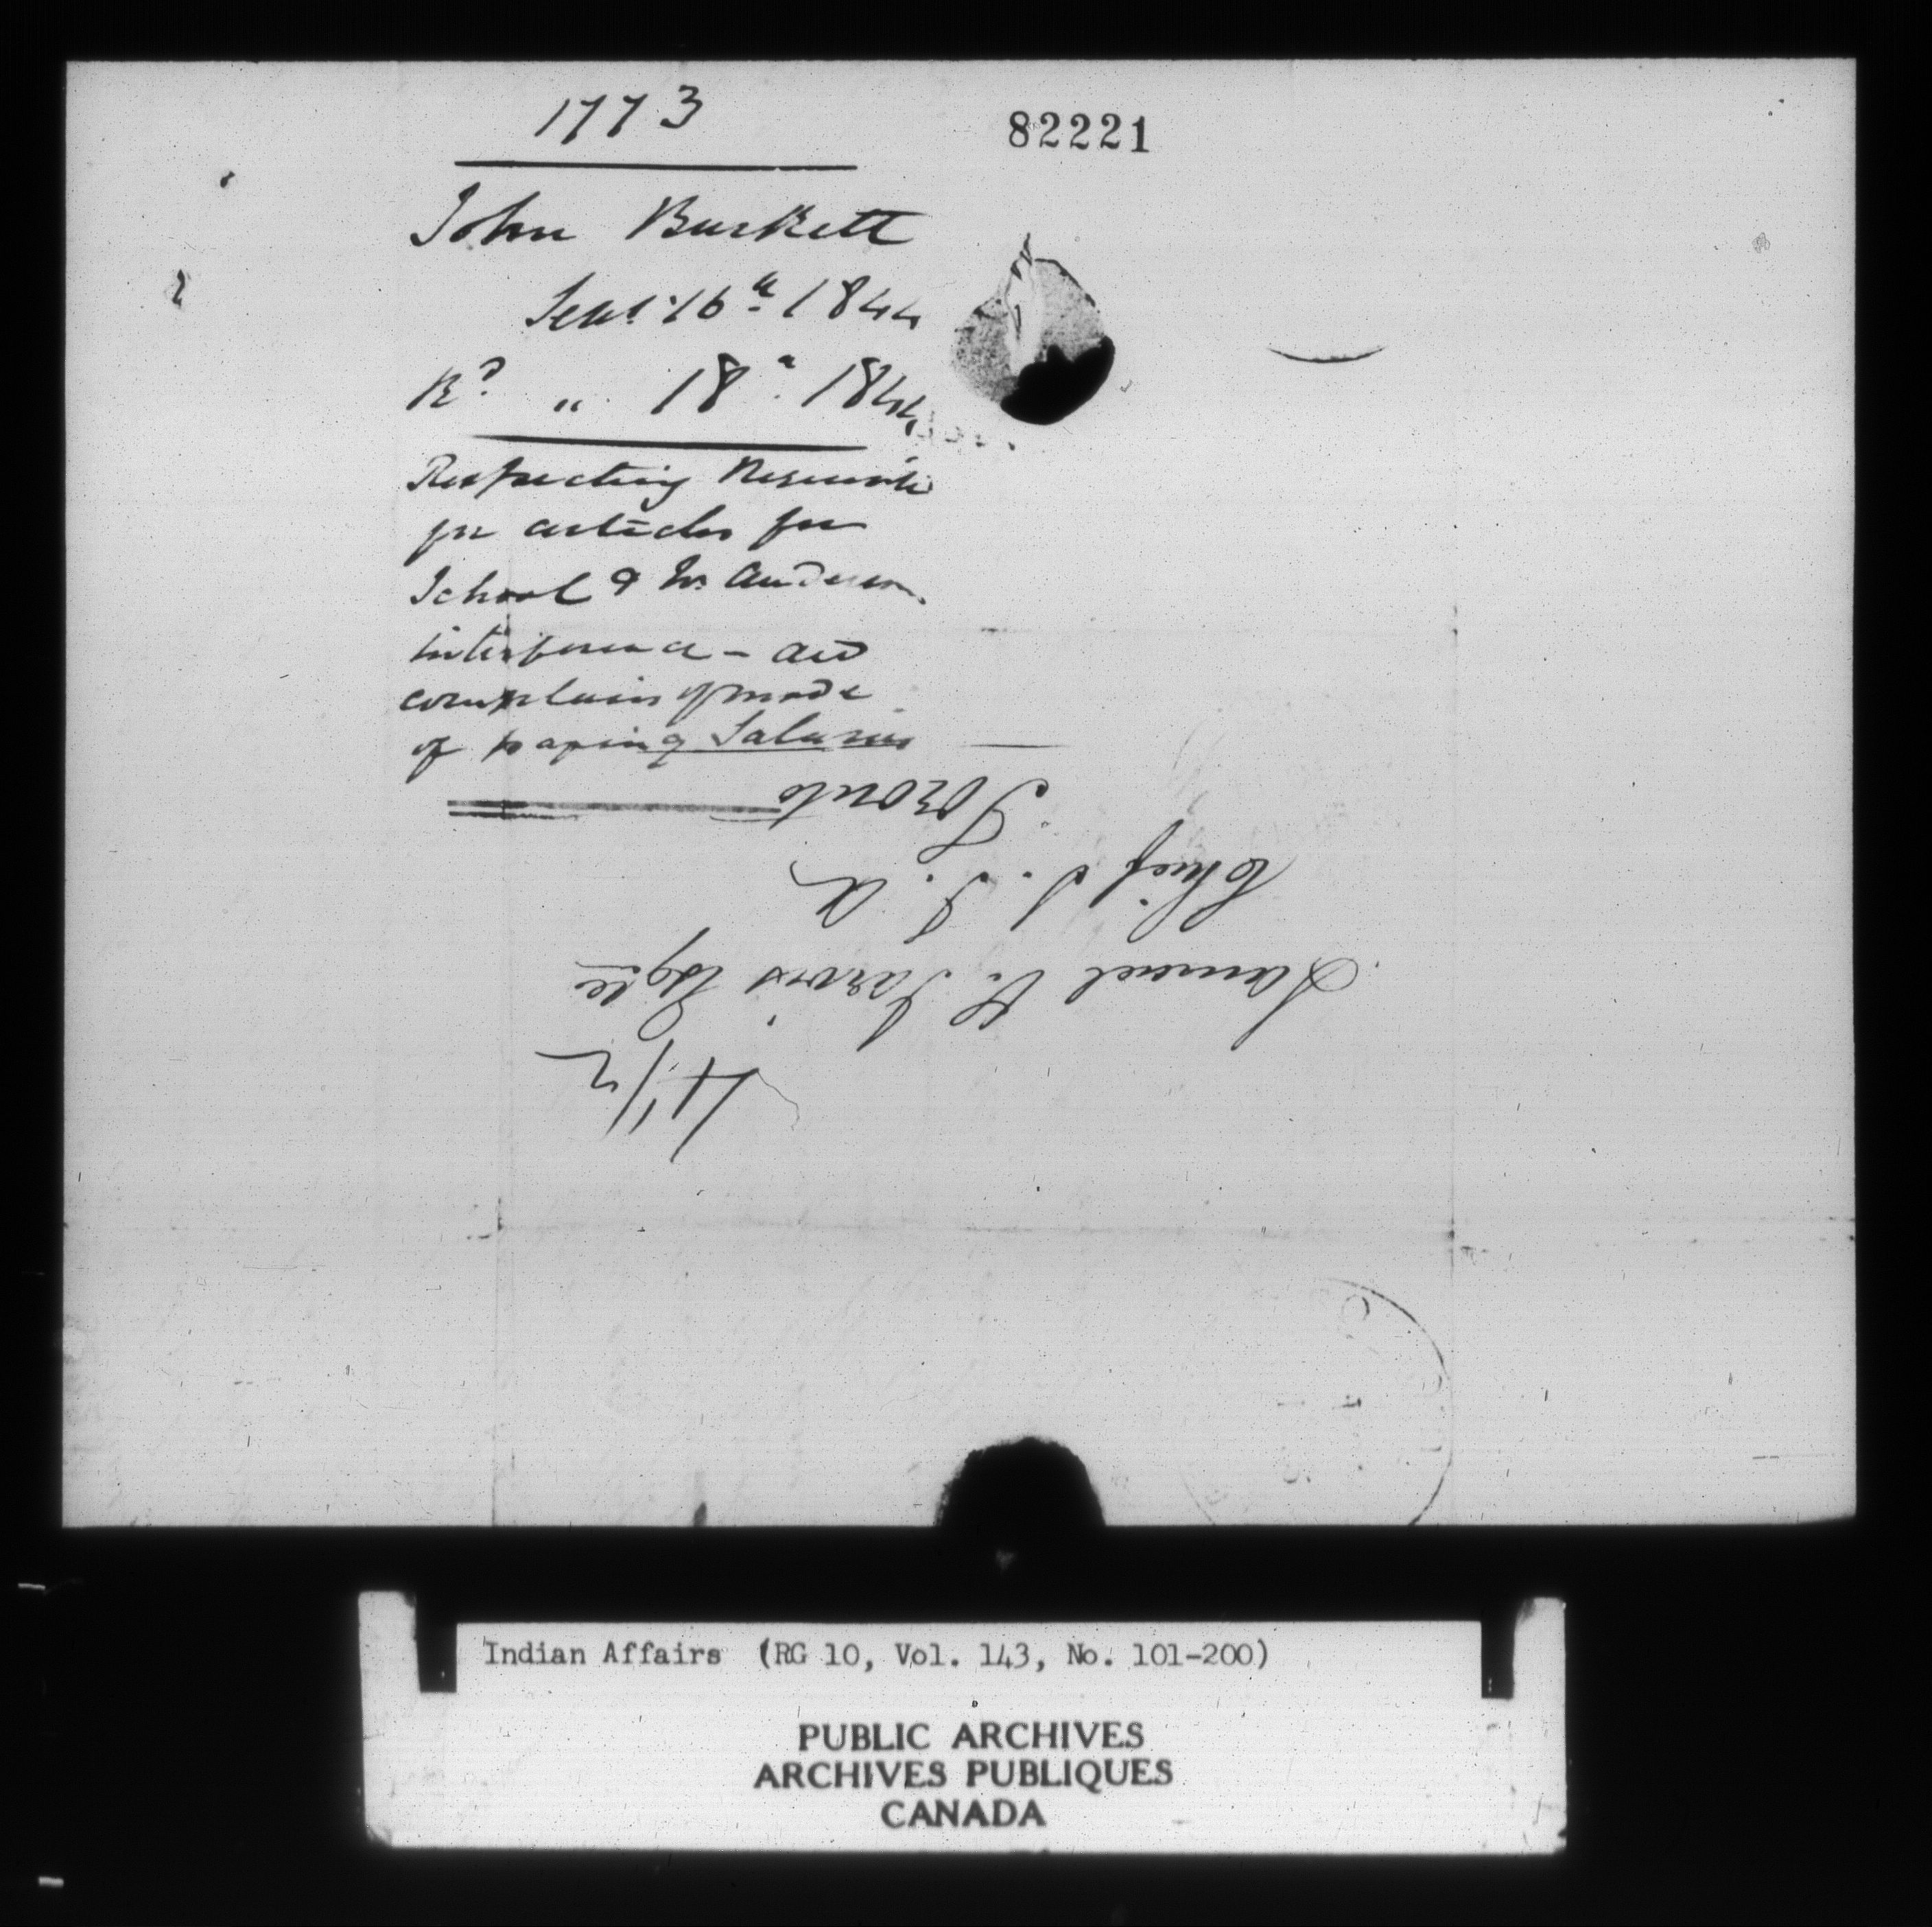 1773
82221
John Burkett
Sept. 16th 1844
Rd. " 18th 1844
Respecting
for articles for
School & Mr Anderson
interference - and
complains of mode
of paying Salaries
Toronto
Chief S. I. A
Samuel P. Jarvis Esqre
4 1/2
Indian Affairs (RG 10, Vol. 143, No. 101-200)
PUBLIC ARCHIVES
ARCHIVES PUBLIQUES
CANADA